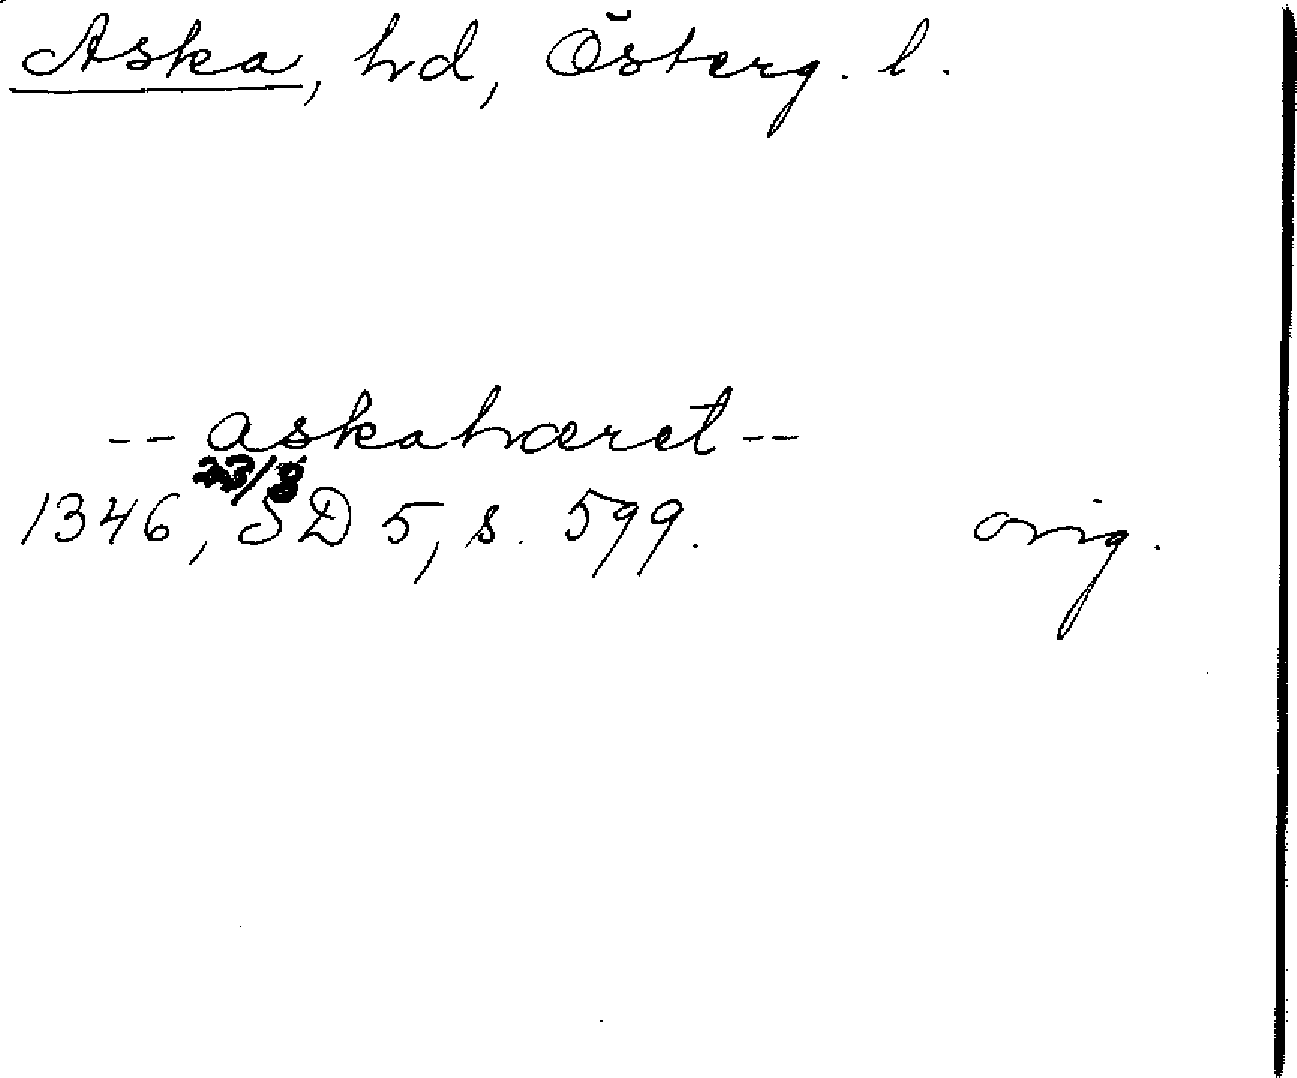 Aska, hd, Österg. l.
-- askahæret --
23/8
1346, SD 5, s. 599. orig.